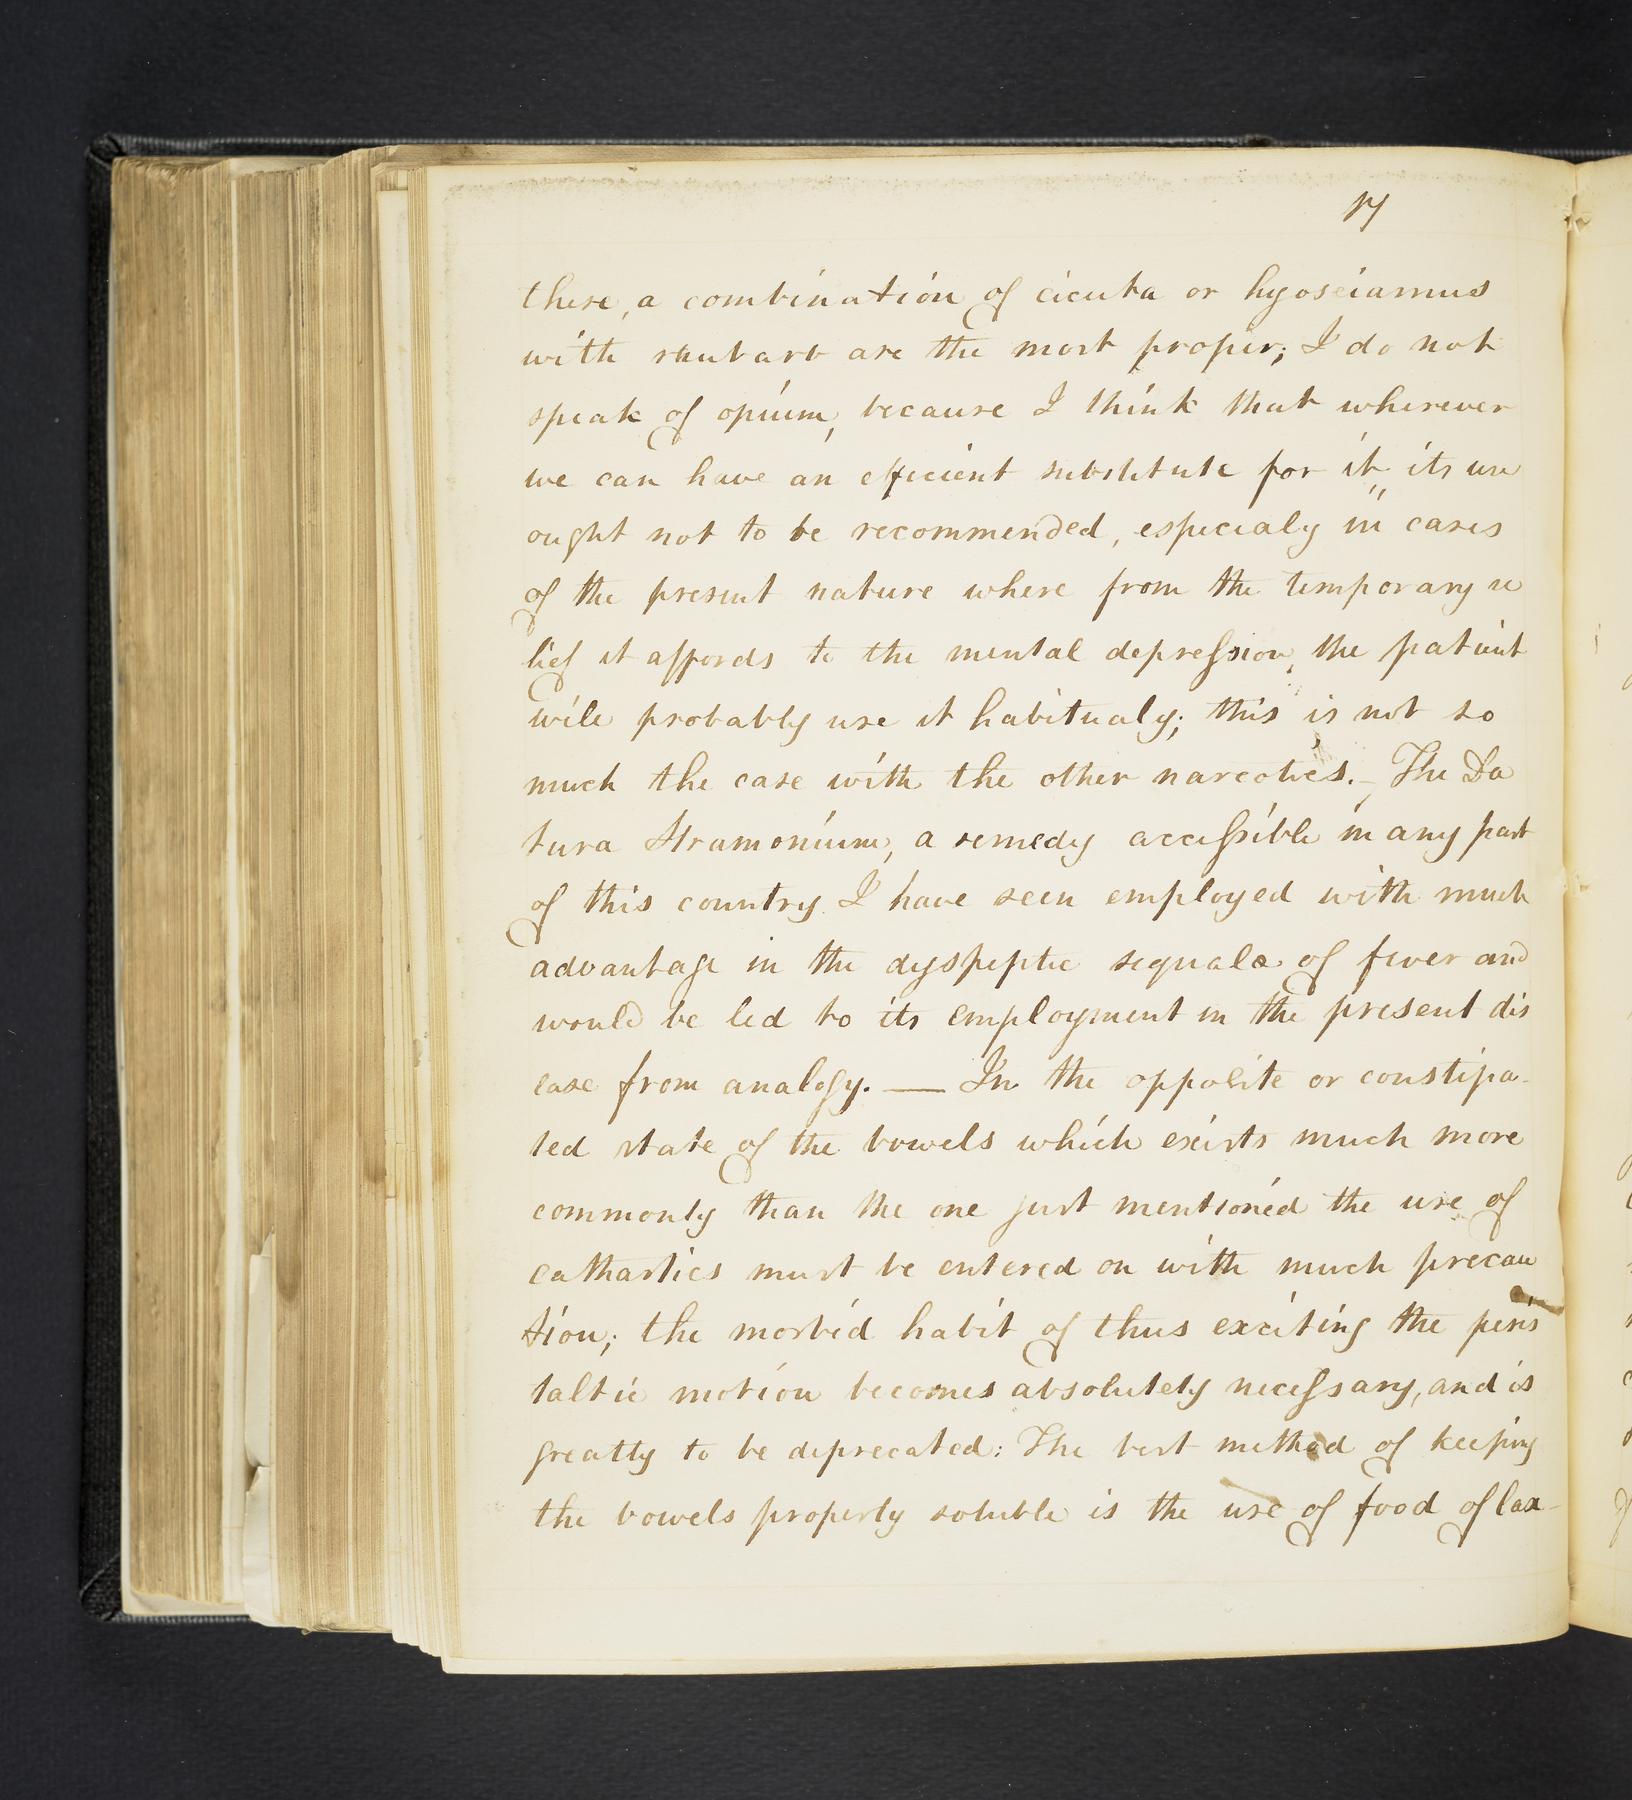 17
these, a combination of cicuta or hyosciamus
with rhubarb are the most proper; I do not
speak of opium, because I think that wherever
we can have an efficient substitute for it, its use
ought not to be recommended, especialy in cases
of the present nature where from the temporary re
lief it affords to the mental depression, the patient
will probably use it habitualy; this is not so
much the case with the other narcotics. — The Da
tura Stramonium, a remedy accessible in any part
of this country I have seen employed with much
advantage in the dyspeptic sequala of fever and
would be led to its employment in the present dis
ease from analogy. — In the opposite or constipa-
ted state of the bowels which exists much more
commonly than the one just mentioned the use of
cathartics must be entered on with much precau
tion; the morbid habit of thus exciting the peris
taltic motion becomes absolutely necessary, and is
greatly to be deprecated: The best method of keeping
the bowels properly soluble is the use of food of lax-